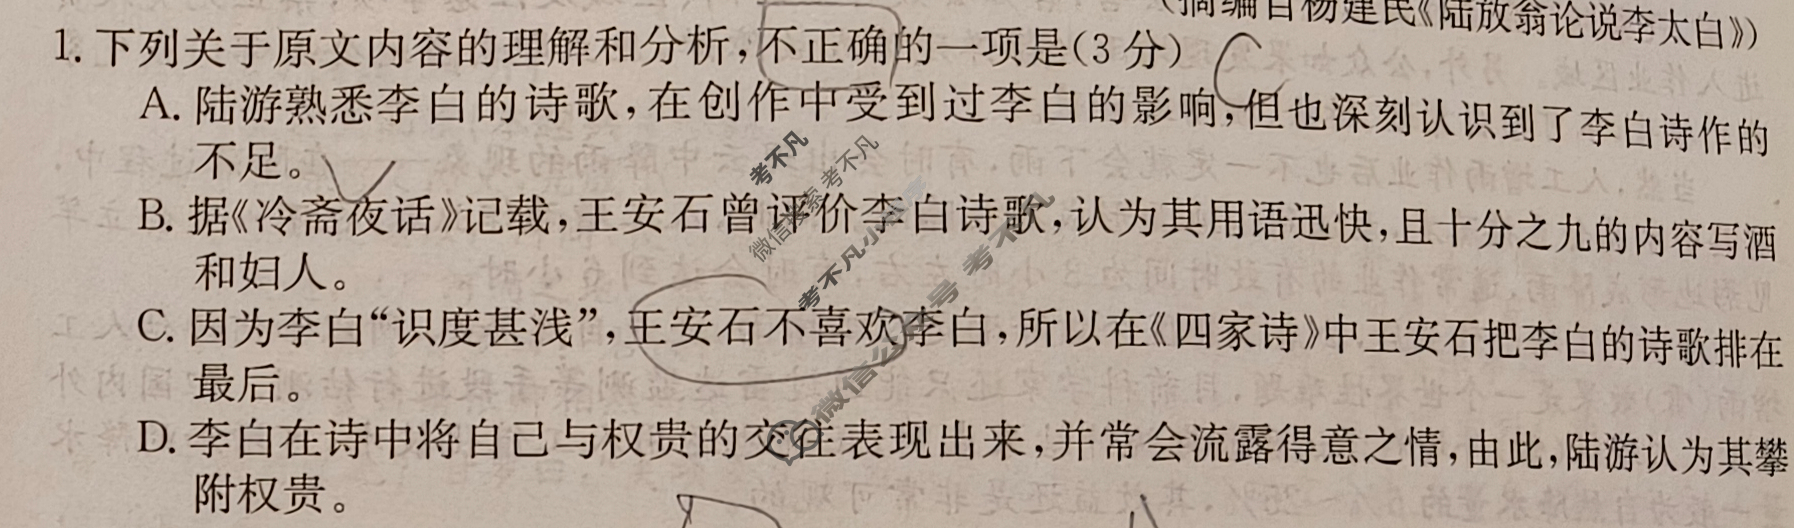 (摘编自杨建民《陆放翁论说李太白》)
1. 下列关于原文内容的理解和分析,不正确的一项是(3分)
A. 陆游熟悉李白的诗歌,在创作中受到过李白的影响,但也深刻认识到了李白诗作的
不足。
B. 据《冷斋夜话》记载,王安石曾评价李白诗歌,认为其用语迅快,且十分之九的内容写酒
和妇人。
C. 因为李白“识度甚浅”,王安石不喜欢李白,所以在《四家诗》中王安石把李白的诗歌排在
最后。
D. 李白在诗中将自己与权贵的交往表现出来,并常会流露得意之情,由此,陆游认为其攀
附权贵。
考不凡
微信搜索 考不凡
考不凡小
微信公众号 考不凡